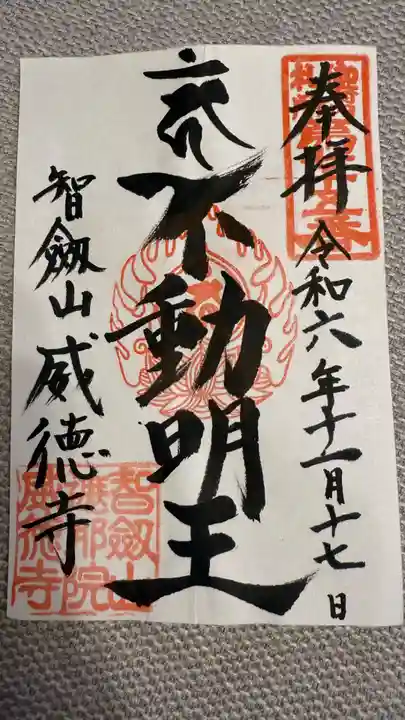 奉拝
令和六年十一月十七日
不動明王
智劔山威徳寺
智劔山
威徳寺